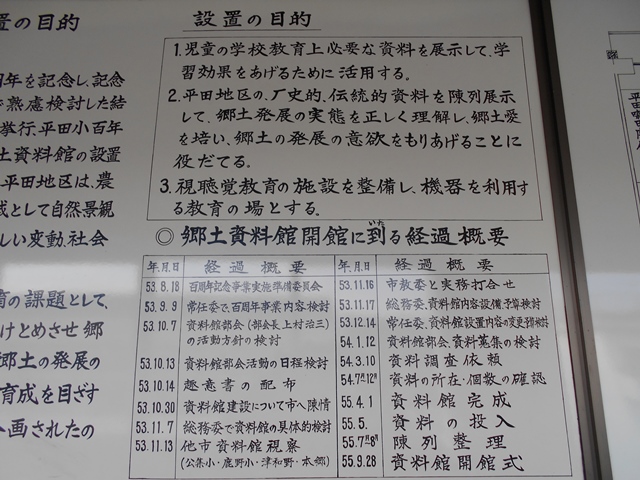 置の目的
周年を記念し、記念
で熟慮検討した結
挙行、平田小百年
土資料館の設置
平田地区は、農
成として自然景観
しい変動、社会
育の課題として、
けとめさせ郷
郷土の発展の
育成を目ざす
画されたの
設置の目的
1.児童の学校教育上必要な資料を展示して、学
習効果をあげるために活用する。
2.平田地区の、歴史的、伝統的資料を陳列展示
して、郷土発展の実態を正しく理解し、郷土愛
を培い、郷土の発展の意欲をもりあげることに
役だてる。
3.視聴覚教育の施設を整備し、機器を利用す
る教育の場とする。
◎郷土資料館開館に到る経過概要
いた
年.月.日 経過概要
53.8.18 百周年記念事業実施準備委員会
53.9.9 常任委で、百周年事業内容検討
53.10.7 資料館部会(部会長上村治三)
の活動方針の検討
53.10.13 資料館部会活動の日程検討
53.10.14 趣意書の配布
53.10.30 資料館建設について市へ陳情
53.11.7 総務委で資料館の具体的検討
53.11.13 他市資料館視察
(公集小・鹿野小・津和野・本郷)
年.月.日 経過概要
53.11.16 市教委と実務打合せ
53.11.17 総務委、資料館内容設備予算検討
53.12.14 常任委、資料館設置内容の変更予算検討
54.1.12 資料館部会、資料蒐集の検討
54.3.10 資料調査依頼
54.7月~12月 資料の所在・個数の確認
55.4.1 資料館完成
55.5. 資料の投入
55.7月~8月 陳列整理
55.9.28 資料館開館式